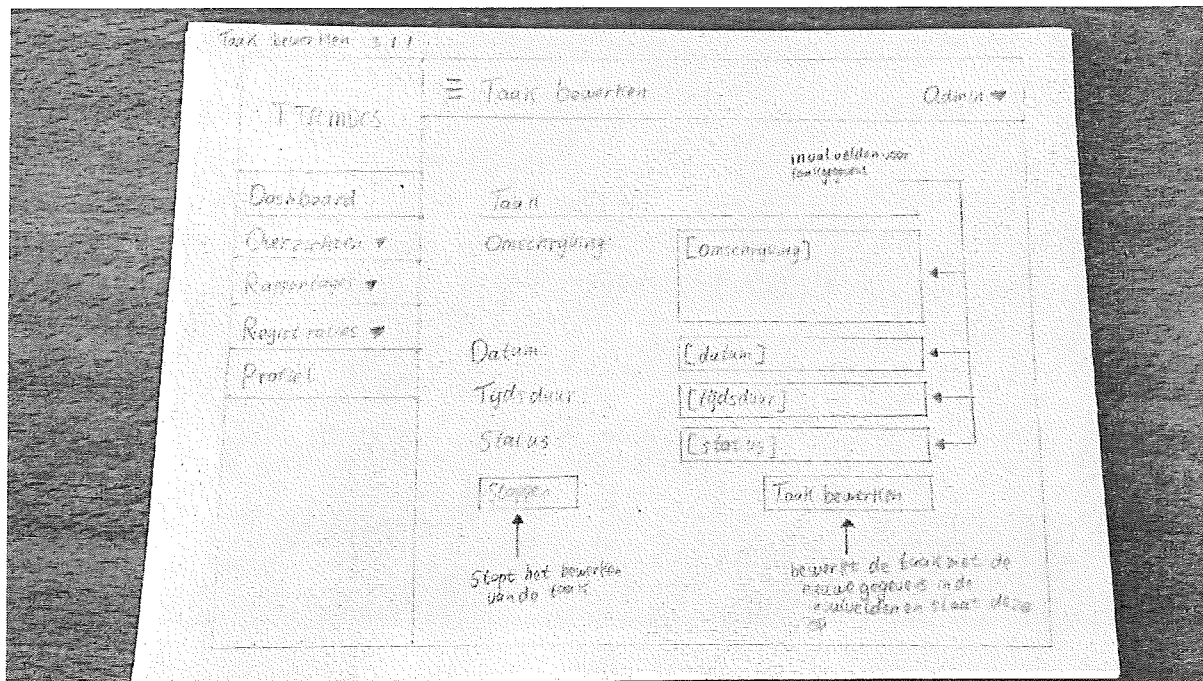 Taak bewerken 3.1.1
Taak bewerken
Admin
Dashboard
Overzichten
Rapportages
Registraties
Profiel
invul velden voor
Taak
Omschrijving
[Omschrijving]
Datum
[datum]
Tijdsduur
[tijdsduur]
Status
[status]
Stoppen
Taak bewerken
Stopt het bewerken
van de taak
bewerkt de taak met de
nieuwe gegevens in de
invulvelden en slaat deze
op